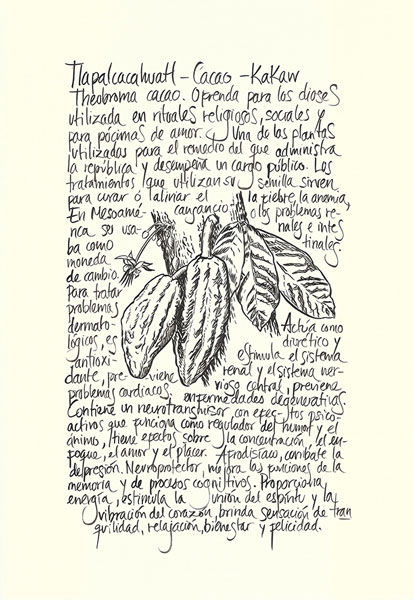 Tlapalcacahuatl - Cacao - Kakaw
Theobroma cacao. Ofrenda para los dioses
utilizada en rituales religiosos, sociales y
para pócimas de amor. Una de las plantas
utilizadas para el remedio del que administra
la república y desempeña un cargo público. Los
tratamientos que utilizan su semilla sirven
para curar ó aliviar el la fiebre, la anemia,
En Mesoamé cansancio o los problemas re-
rica se usa- nales e intes
ba como tinales.
moneda
de cambio.
Para tratar
problemas
dermato- Actúa como
lógicos, es diurético y
antioxi- estimula el sistema
dante, pre- viene renal y el sistema ner-
problemas cardiacos. vioso central, previene
enfermedades degenerativas.
Contiene un neurotransmisor con efectos psico-
activos que funciona como regulador del humor y el
ánimo, tiene efectos sobre la concentración, el en-
foque, el amor y el placer. Afrodisíaco, combate la
depresión. Neuroprotector, mejora las funciones de la
memoria y de procesos cognitivos. Proporciona
energía, estimula la unión del espíritu y la
vibración del corazón, brinda sensación de tran
quilidad, relajación, bienestar y felicidad.